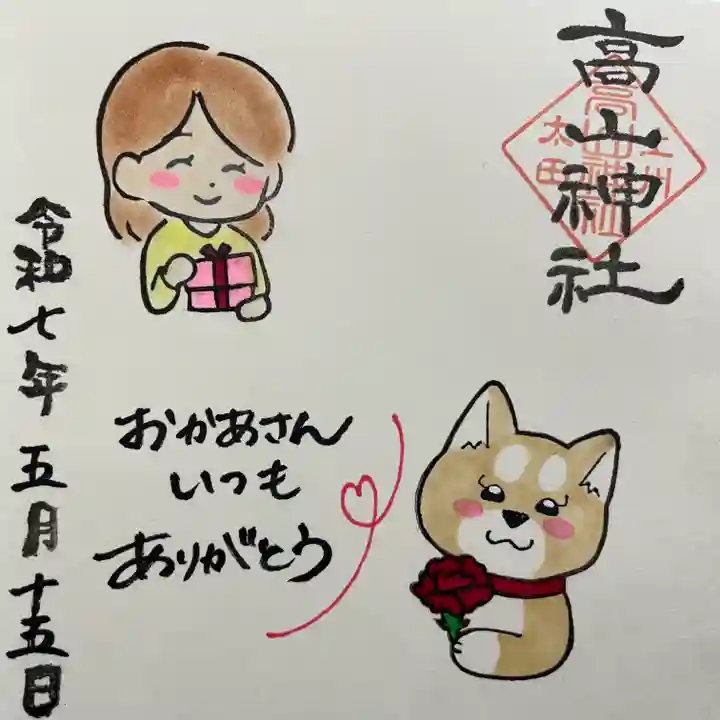 高山神社
上州
太田
高山神社
おかあさん
いつも
ありがとう
令和七年 五月 十五日